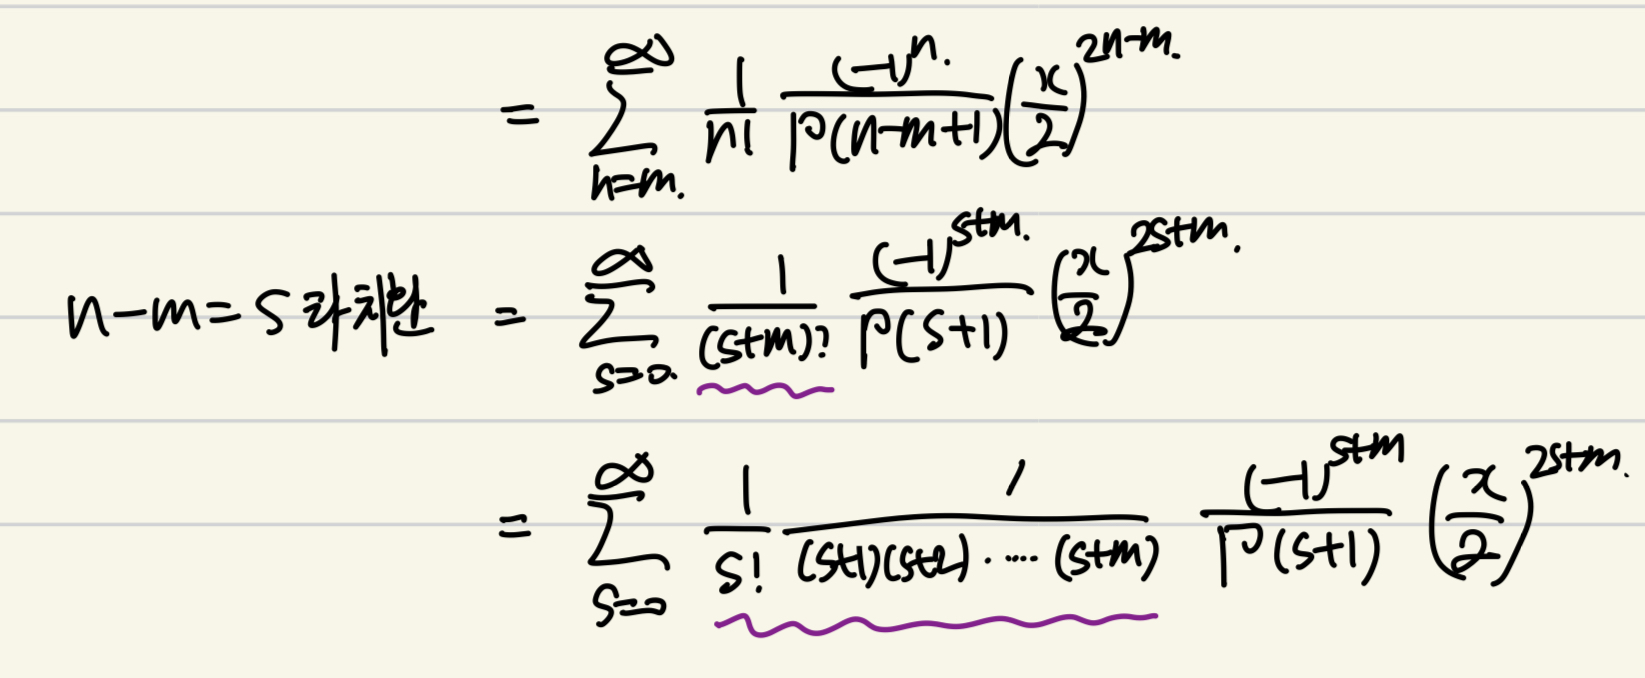 = ∑_{n=m.}^{∞} 1/n! (-1)^{n.}/Γ(n-m+1) (x/2)^{2n-m.}
n-m=s 라 치환 = ∑_{s=0.}^{∞} 1/(s+m)! (-1)^{s+m.}/Γ(s+1) (x/2)^{2s+m.}
= ∑_{s=0}^{∞} 1/s! 1/(s+1)(s+2)·····(s+m) (-1)^{s+m}/Γ(s+1) (x/2)^{2s+m.}